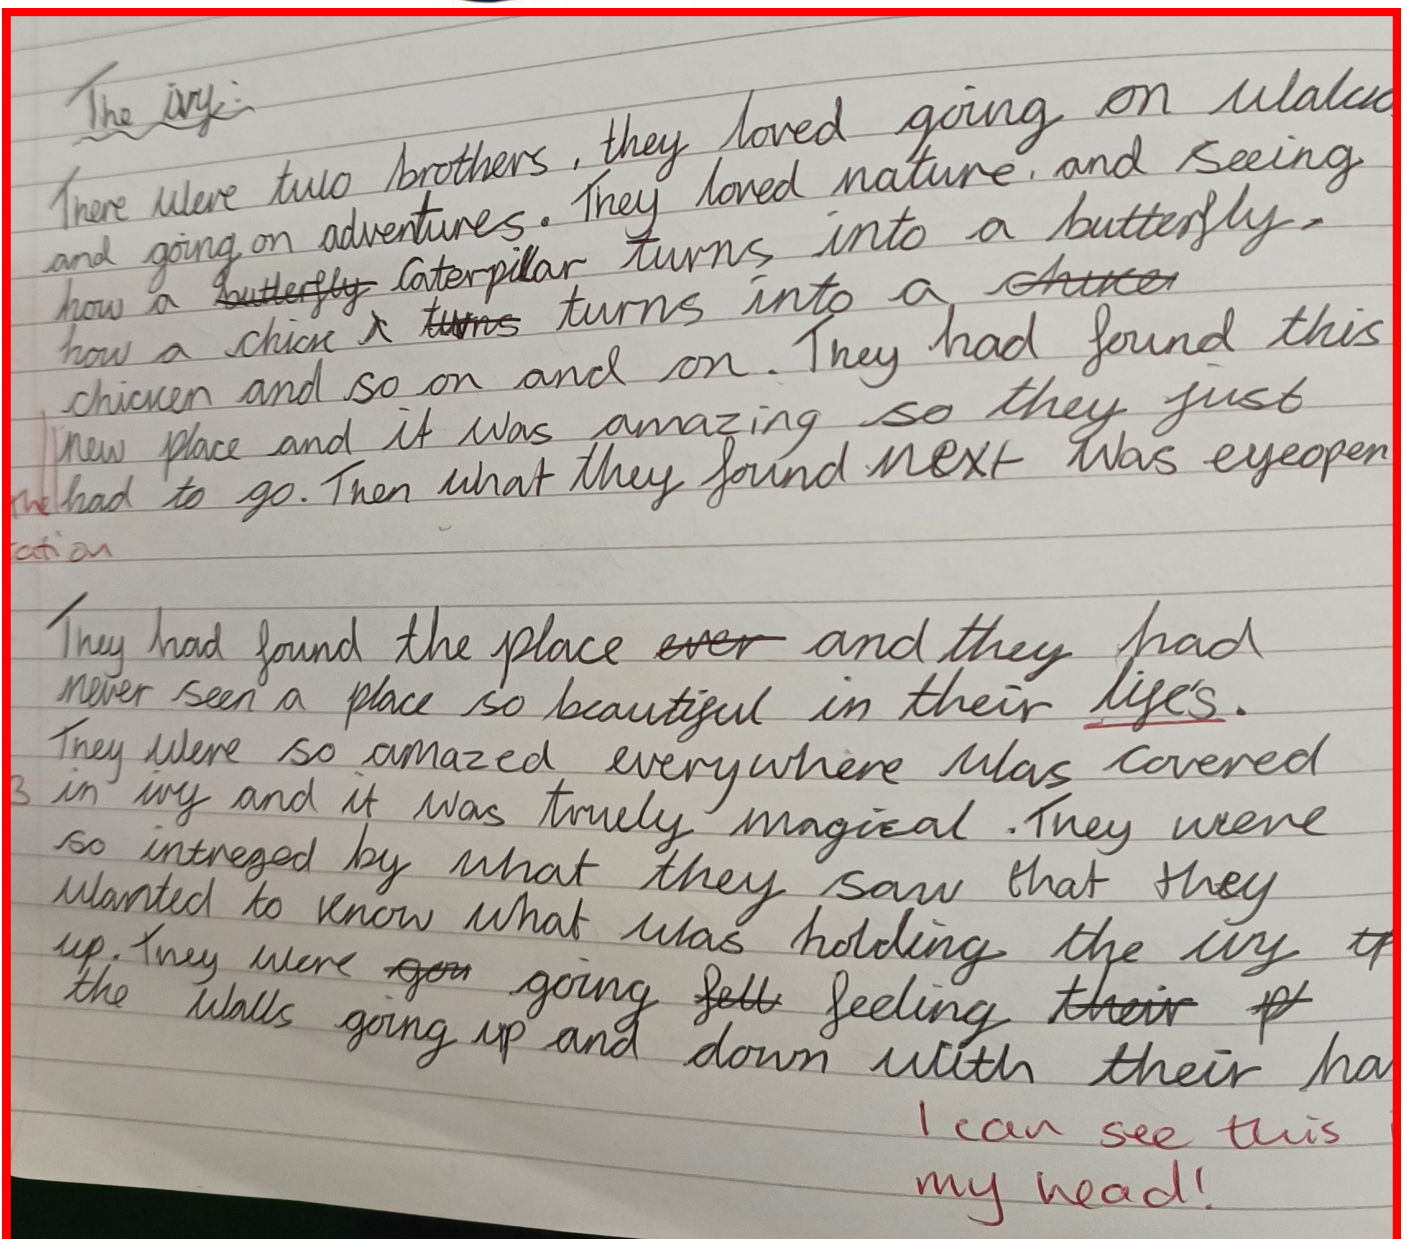 The ivy:
There were two brothers, they loved going on walks
and going on adventures. They loved nature. and seeing
how a butterfly Caterpillar turns into a butterfly,
how a chick turns turns into a
chicken and so on and on. They had found this
new place and it was amazing so they just
the had to go. Then what they found next was eyeopen
cation
They had found the place ever and they had
never seen a place so beautiful in their life's.
They were so amazed everywhere was covered
3 in ivy and it was truely magical. They were
so intreged by what they saw that they
wanted to know what was holding the ivy
up. They were gou going felt feeling their
the walls going up and down with their ha
I can see this
my head!